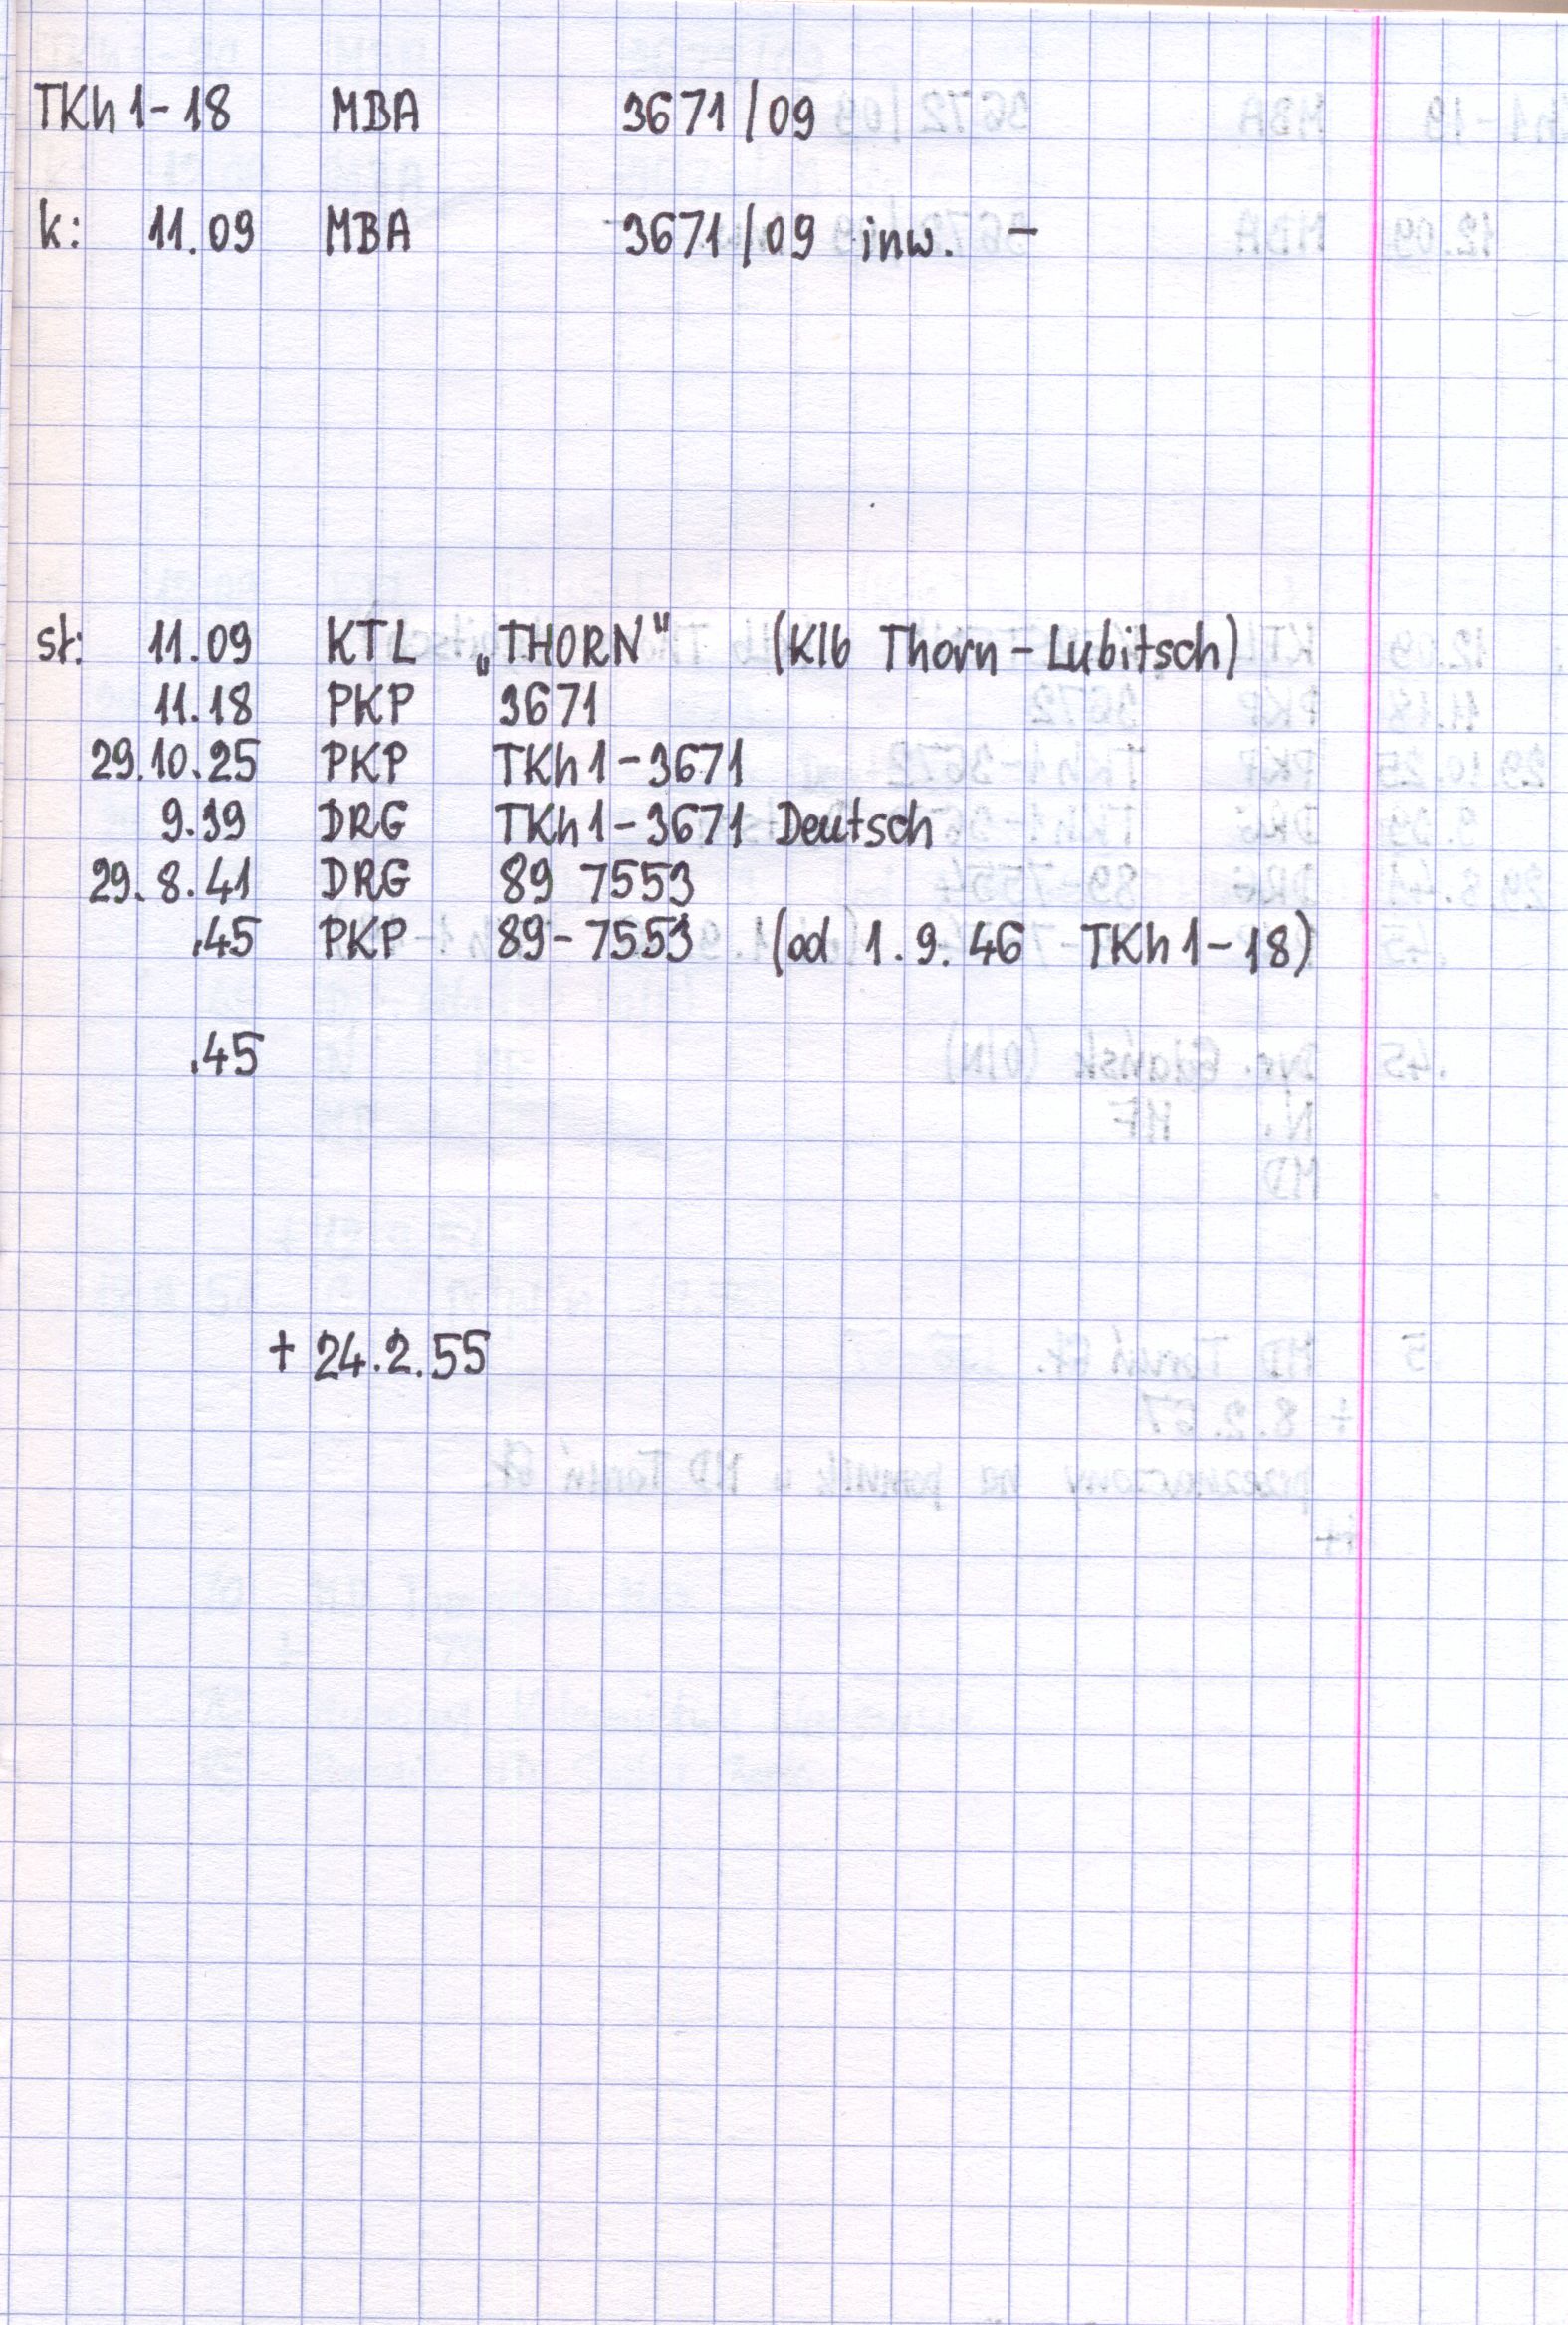 TKh1-18 MBA 3671/09
k: 11.09 MBA 3671/09 inw. -
st: 11.09 KTL „THORN" (Klb Thorn-Lubitsch)
11.18 PKP 3671
29.10.25 PKP TKh1-3671
9.39 DRG TKh1-3671 Deutsch
29.8.41 DRG 89 7553
.45 PKP 89-7553 (od 1.9.46 TKh1-18)
.45
+ 24.2.55